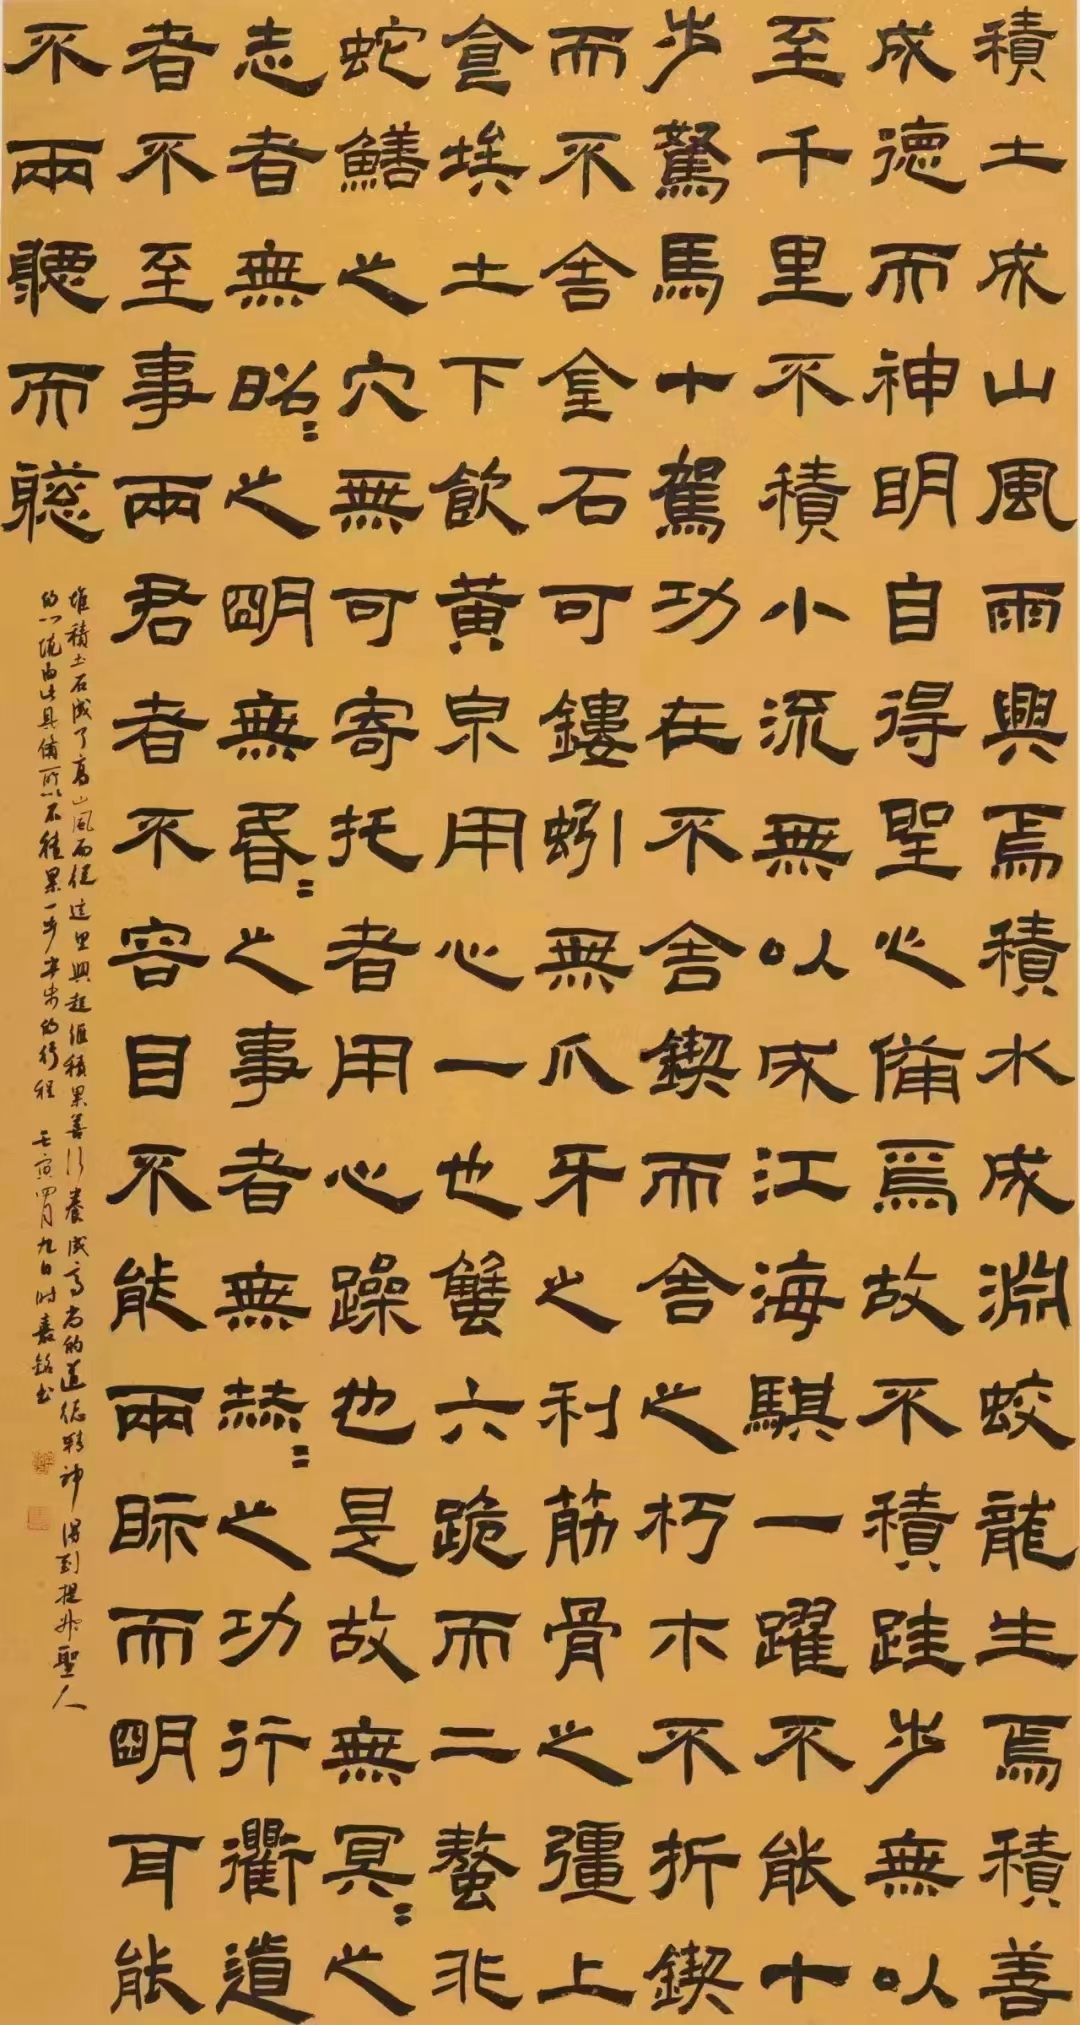 積土成山風雨興焉積水成淵蛟龍生焉積善
成德而神明自得聖心備焉故不積跬步無以
至千里不積小流無以成江海騏一躍不能十
步駑馬十駕功在不舍鍥而舍之朽木不折鍥
而不舍金石可鏤蚓無爪牙之利筋骨之彊上
食埃土下飲黃泉用心一也蟹六跪而二螯非
蛇鱔之穴無可寄托者用心躁也是故無冥〻之
志者無昭〻之明無昏〻之事者無赫〻之功行衢道
者不至事兩君者不容目不能兩眎而明耳能
不兩聽而聰
堆積土石成了高山風雨從這里興起匯積累善行養成高尚的道德精神得到提升聖人
的心境由此具備所以不積累一步半步的行程 壬寅四月九日時嘉銘書